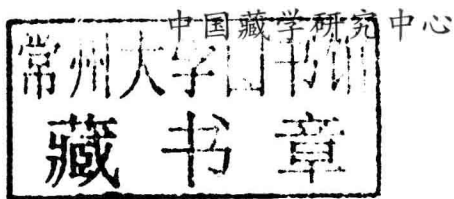 中国藏学研究中心
常州大学图书馆
藏书章